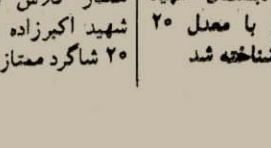 با معدل ۲۰
شناخته شد
شهید اکبرزاده
۲۰ شاگرد ممتاز